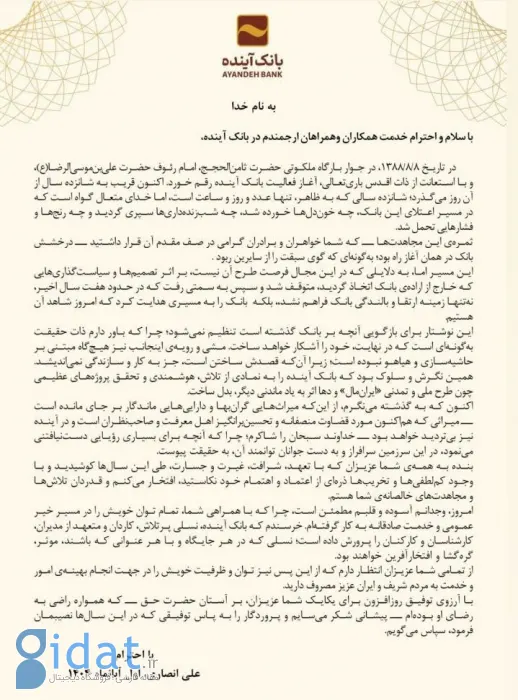 بانک آینده
AYANDEH BANK
به نام خدا
با سلام و احترام خدمت همکاران و همراهان ارجمندم در بانک آینده،
در تاریخ ۱۳۸۸/۸/۸، در جوار بارگاه ملکوتی حضرت ثامن‌الحجج، امام رئوف حضرت علی‌بن‌موسی‌الرضا(ع)،
و با استعانت از ذات اقدس باری‌تعالی، آغاز فعالیت بانک آینده رقم خورد. اکنون قریب به شانزده سال از
آن روز می‌گذرد؛ شانزده سالی که به ظاهر، تنها عدد و روز و ساعت است، اما خدای متعال گواه است که
در مسیر اعتلای این بانک، چه خون‌دل‌ها خورده شد، چه شب‌زنده‌داری‌ها سپری گردید و چه رنج‌ها و
فشارهایی تحمل شد.
ثمره‌ی این مجاهدت‌ها ــ که شما خواهران و برادران گرامی در صف مقدم آن قرار داشتید ــ درخشش
بانک در همان آغاز راه بود؛ به‌گونه‌ای که گوی سبقت را از سایرین ربود .
این مسیر اما، به دلایلی که در این مجال فرصت طرح آن نیست، بر اثر تصمیم‌ها و سیاست‌گذاری‌هایی
که خارج از اراده‌ی بانک اتخاذ گردید، متوقف شد و سپس به سمتی رفت که در حدود هفت سال اخیر،
نه‌تنها زمینه ارتقا و بالندگی بانک فراهم نشد، بلکه بانک را به مسیری هدایت کرد که امروز شاهد آن
هستیم.
این نوشتار برای بازگویی آنچه بر بانک گذشته است تنظیم نمی‌شود؛ چرا که باور دارم ذات حقیقت
به‌گونه‌ای است که در نهایت، خود را آشکار خواهد ساخت. مشی و رویه‌ی اینجانب نیز هیچ‌گاه مبتنی بر
حاشیه‌سازی و هیاهو نبوده است؛ زیرا آن‌که قصدش ساختن است، جز به کار و سازندگی نمی‌اندیشد.
همین نگرش و سلوک بود که بانک آینده را به نمادی از تلاش، هوشمندی و تحقق پروژه‌های عظیمی
چون طرح ملی و تمدنی «ایران‌مال» و ده‌ها اثر به یاد ماندنی دیگر، بدل ساخت.
اکنون که به گذشته می‌نگرم، از این‌که میراث‌هایی گران‌بها و دارایی‌هایی ماندگار بر جای مانده است
ــ میراثی که هم‌اکنون مورد قضاوت منصفانه و تحسین‌برانگیز اهل معرفت و صاحب‌نظران است و در آینده
نیز بی‌تردید خواهد بود ــ خداوند سبحان را شاکرم؛ چرا که آنچه برای بسیاری رؤیایی دست‌نیافتنی
می‌نمود، در این سرزمین سرافراز و به دست جوانان توانمند آن، به حقیقت پیوست.
بنده به همه‌ی شما عزیزان که با تعهد، شرافت، غیرت و جسارت، طی این سال‌ها کوشیدید و با
وجود کم‌لطفی‌ها و تخریب‌ها ذره‌ای از اعتماد و اهتمام خود نکاستید، افتخار می‌کنم و قدردان تلاش‌ها
و مجاهدت‌های خالصانه‌ی شما هستم.
امروز، وجدانم آسوده و قلبم مطمئن است، چرا که با همراهی شما، تمام توان خویش را در مسیر خیر
عمومی و خدمت صادقانه به کار گرفته‌ام. خرسندم که بانک آینده، نسلی پرتلاش، کاردان و متعهد از مدیران،
کارشناسان و کارکنان را پرورش داده است؛ نسلی که در هر جایگاه و با هر عنوانی که باشند، موثر،
گره‌گشا و افتخارآفرین خواهند بود.
از تمامی شما عزیزان انتظار دارم که از این پس نیز توان و ظرفیت خویش را در جهت انجام بهینه‌ی امور
و خدمت به مردم شریف و ایران عزیز مصروف دارید.
با آرزوی توفیق روزافزون برای یکایک شما عزیزان، بر آستان حضرت حق ــ که همواره راضی به
رضای او بوده‌ام ــ پیشانی شکر می‌سایم و پروردگار را به پاس توفیقی که در این سال‌ها نصیبمان
فرمود، سپاس می‌گویم.
با احترام
علی انصاری، اول آبانماه ۱۴۰۴
gidat.ir